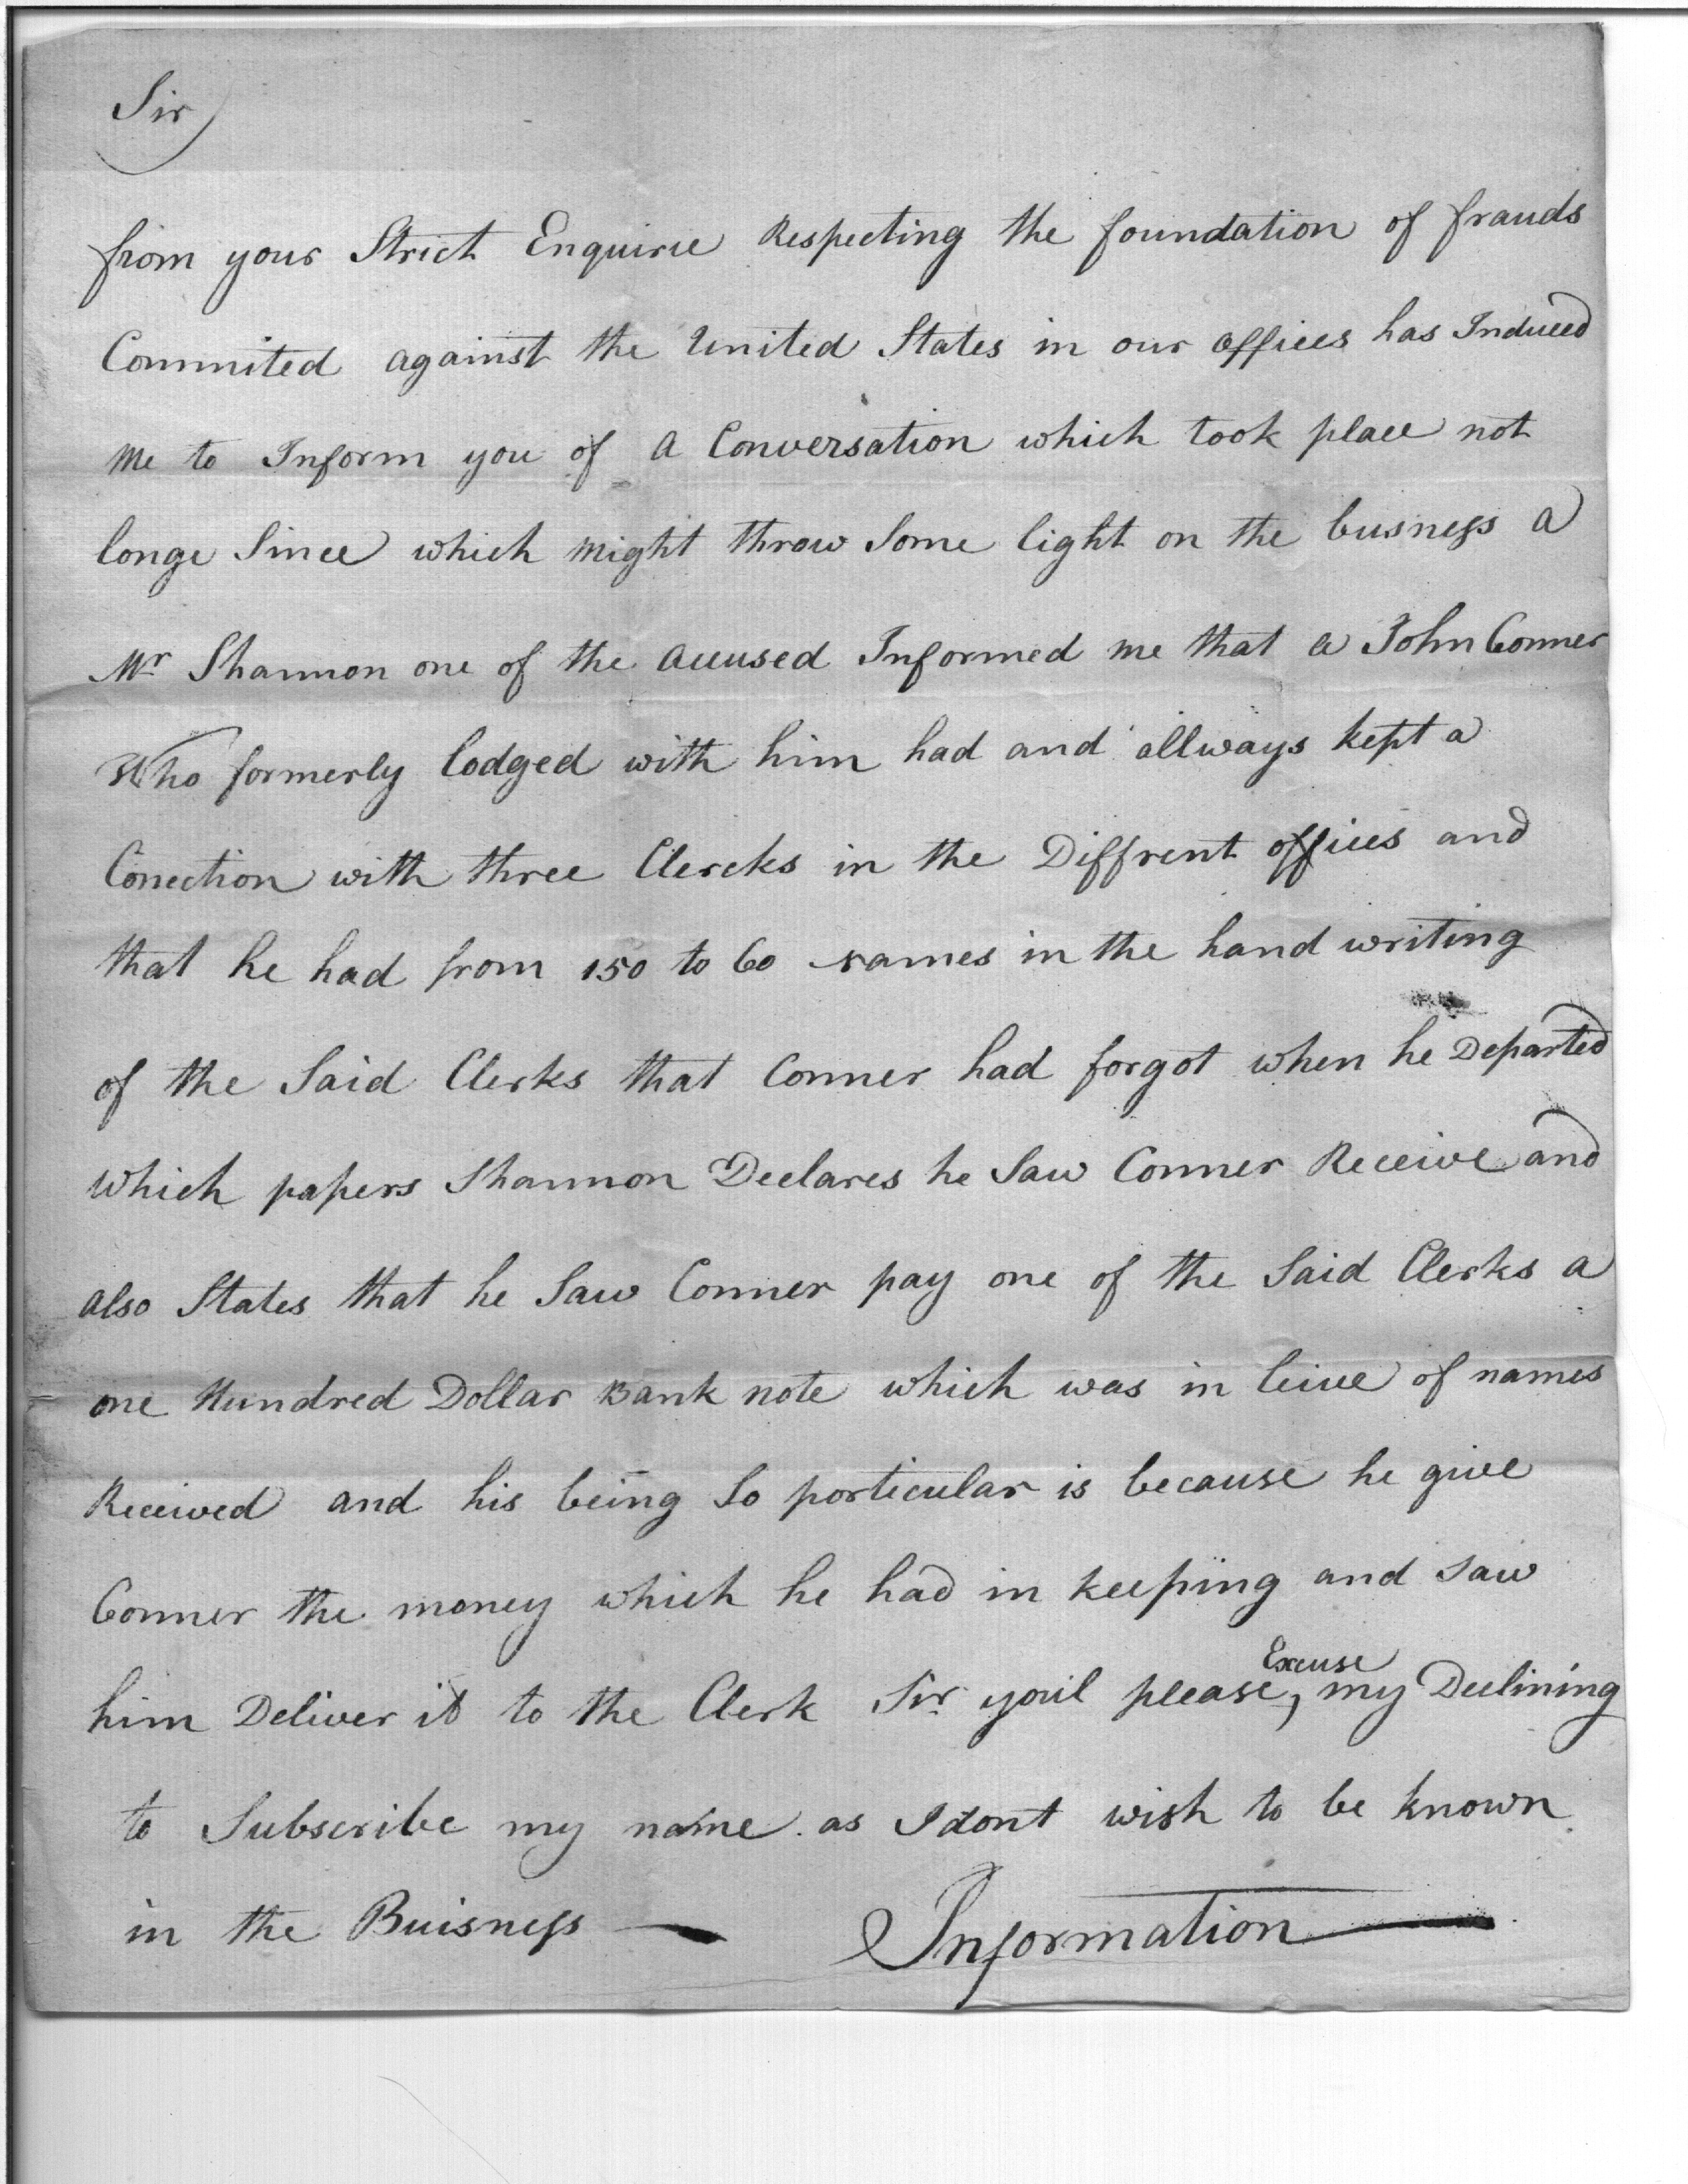 Sir
from your Strict Enquirie Respecting the foundation of frauds
Commited against the United States in our offices has Induced
me to Inform you of a Conversation which took place not
longe Since which might throw Some light on the busness a
Mr Shannon one of the accused Informed me that a John Conner
Who formerly lodged with him had and allways kept a
Conection with three Clercks in the Diffrent offices and
that he had from 150 to 60 names in the hand writing
of the Said Clerks that Conner had forgot when he Departed
which papers Shannon Declares he Saw Conner Receive and
also States that he Saw Conner pay one of the Said Clerks a
one Hundred Dollar Bank note which was in leiue of names
Received and his being So porticular is because he give
Conner the money which he had in keeping and saw
him Deliver it to the Clerk Sir youl please, Excuse my Declining
to Subscribe my name as I dont wish to be known
in the Buisness —
Information —